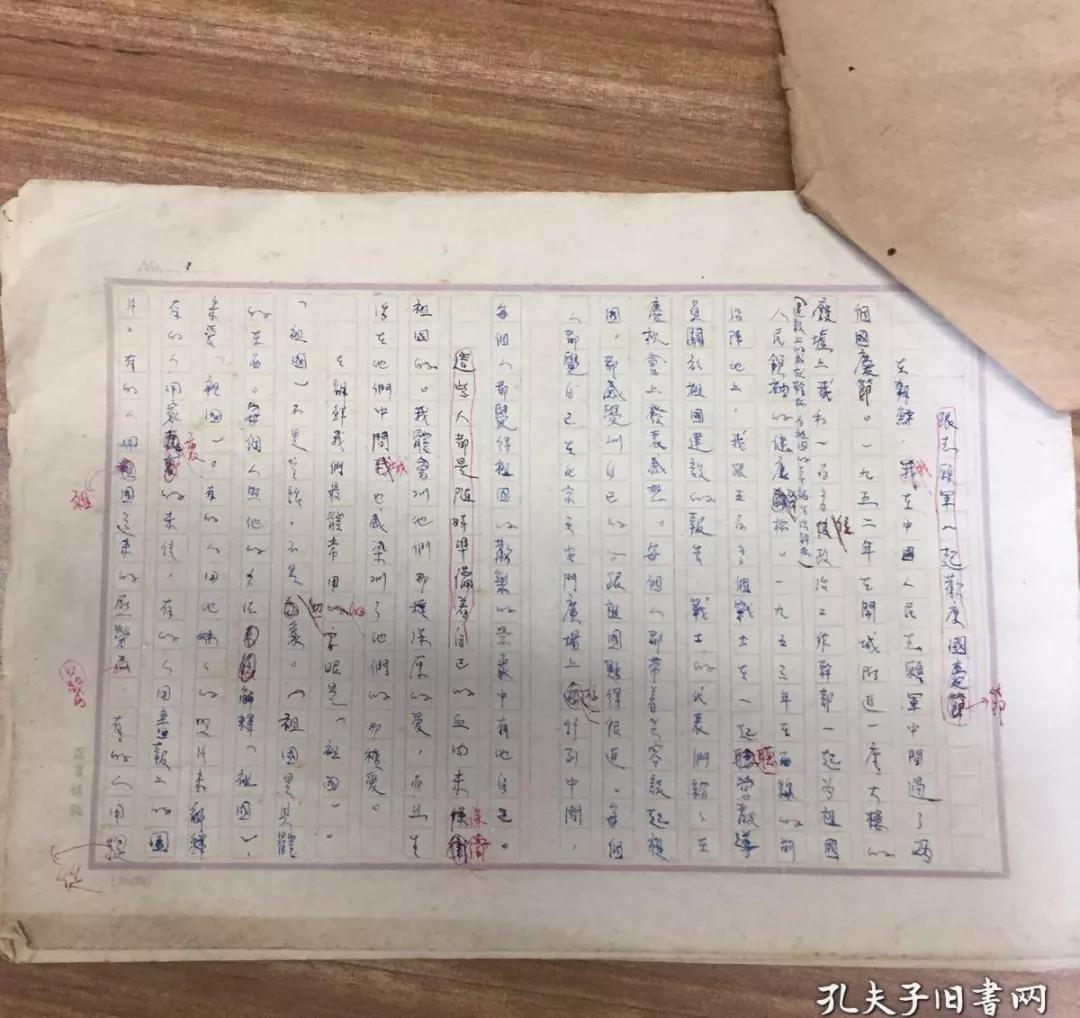 跟志願軍一起歡度國慶節
在朝鮮，我在中國人民志願軍中間過了兩
個國慶節。一九五二年在開城附近一座大樓的
廢墟上我和一百多位政治工作幹部一起為祖國
人民領袖的健康乾杯。一九五三年在西線的前
沿陣地上，我跟五百多個戰士在一起聽
員關於祖國建設的報告，戰士的代表們給
慶祝會上發表感想。每個人都帶着笑容談起祖
國，都感覺到自己跟祖國點得很近。每個
人都覺自己在北京天安門廣場上遊行到中間，
每個人都覺得祖國的歡樂的景象中有他自己。
這些人都是隨時準備着自己的血肉來保衛
祖國的。我體會到他們那樣深厚的愛，而且生
活在他們中間我也感染到了他們的那種愛。
在朝鮮我們最經常用的字眼是「祖國」。
「祖國」不是空話，不是抽象。「祖國是具體
的東西。每個人照他的方法解釋「祖國」，
來愛「祖國」。有的人用他的照片來解釋
有的人用家裏的來信，有的人用畫報上的圖
片。有的人用祖國送來的慰勞品，有的人用從
節
祖
慰勞
從
No.
孔夫子旧書网